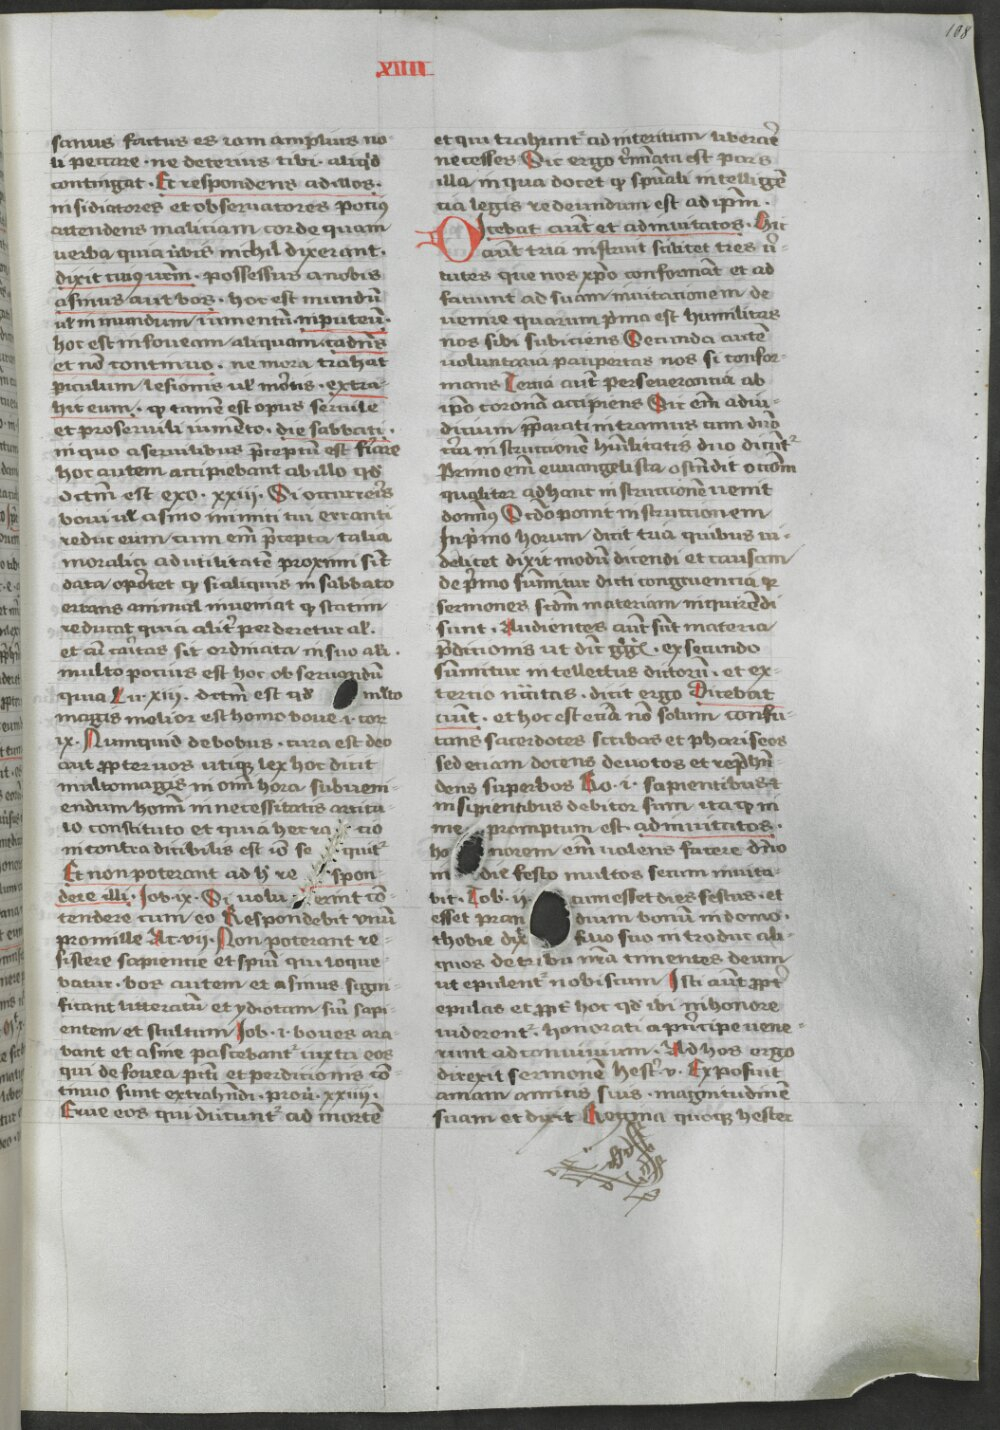 108
XIIII
sanus factus es iam amplius no-
li peccare · ne deterius tibi · aliqd̄
contingat · Et respondens ad illos ·
insidiatores et obseruatores potiꝰ
attendens maliciam corde quam
verba quia v̓bis nichil dixerant ·
dixit cuiꝰ ur̄m · possessum a nobis
asinus aut bos · hoc est mundū
ul̓ inmundum iumentū in puteū ·
hoc est in foueam aliquam cadens
et nō continuo · ne mora trahat
piculum lesionis ul̓ mortis · extra-
hit eum · qꝫ tamē est opus seruile
et pro seruili iumēto · die sabbati ·
in quo a seruilibus p̄ceptū est fiare
hoc autem accipiebant ab illo qd̓
dctm̄ est exo · xxiij · Si occurreris
boui ul̓ asino inimici tui erranti
reduc eum cum em̄ p̄cepta talia
moralia ad utilitatē proximi sint
data oportet qꝫ si aliquis in sabbato
errans animal inueniat qꝫ statim
reducat quia alit̓ perderetur al̓ ·
et cū caritas sit ordinata in suo ali ·
multo pocius est hoc obseruandū
quia Lu · xiii · dctm̄ est qd̓ multo
magis melior est homo boue · i · cor
ix · Numquid de bobus · cura est deo
aut ꝓpter nos utiqꝫ lex hoc dicit
multomagis in om̄i hora subueni-
endum homī in necessitatis articu-
lo constituto et quia hec ra cio
incontradicibilis est iō se quit᷑
Et non poterant ad hec re spon
dere illi · Iob · ix · Si uolu erint cō-
tendere cum eo Respondebit vnū
pro mille Ac · vii · Non poterant re-
sistere sapiencie et spiui qui loque-
batur · bos autem et asinus signi-
ficant litteratū et ydiotam siue sapi-
entem et stultum Iob · i · boues ara-
bant et asine pascebant᷑ iuxta eos
qui de fouea pcti et perdicionis cō-
tinuo sunt extrahendi · prou · xxiiij ·
Erue eos qui ducunt᷑ ad mortē
et qui trahunt᷑ ad interitum liberare
ne cesses Sic ergo t̓minata est pars
illa in qua docet qꝫ spūali intelligē
cia legis redeundum est ad ipm̄ ·
Dicebat aut̄ et ad inuitatos · Hic
aut̄ tria instruit scilicet tres v̓-
tutes que nos xp̄o conformāt et ad
faciunt ad suam inuitacionem de
uenire quarum p̓ma est humilitas
nos sibi subiciens Secunda autē
voluntaria paupertas nos si confor-
mans Tercia aut̄ perseuerancia ab
ipō coronā accipiens Sic em̄ ad iu-
dicium p̄parati intramus cum dn̄o
circa instructionē humilitatis duo dicunt᷑
Primo em̄ ewangelista ostēdit occoīem
qualiter ad hanc instructionē uenit
dominꝰ Scdo ponit instructionem
In p̓mo horum dicit tria quibus vi-
delicet dixit modū dicendi et causam
de p̓mo sumitur dicti congruencia qꝫ
sermones scdm̄ materiam inquirēdi
sunt · Audientes aut̄ sūt materia
p̄dicionis ut dic̄ gg · ex secundo
sumitur intellectus dictorū · et ex-
tercio nccitas · dicit ergo Dicebat
aut̄ · et hoc est eciā nō solum confu-
tans sacerdotes scribas et phariseos
sed eciam docens deuotos et rep̄hen
dens superbos Ro · i · sapientibus ⁊
insipientibus debitor sum ita qꝫ in
me promptum est · ad inuitatos ·
ho norem em̄ uolens facere dn̄o
in die festo multos secum inuita-
bit · Tob · ii · cum esset dies festus · et
esset pran dium bonū in domo ·
thobie dix̄ filio suo introduc ali-
quos de tribu nr̄a timentes deum
ut epulent᷑ nobiscum Isti aut̄ ꝓpt̓
epulas et ꝓpt̓ hoc qd̓ ibi in honore
viderent᷑ · honorati a p̓ncipe uene-
runt ad conuiuium · Ad hos ergo
direxit sermonē hest᷑ · v · Exposuit
aman amicis suis · magnitudinē
suam et dixit Regina quoqꝫ hester